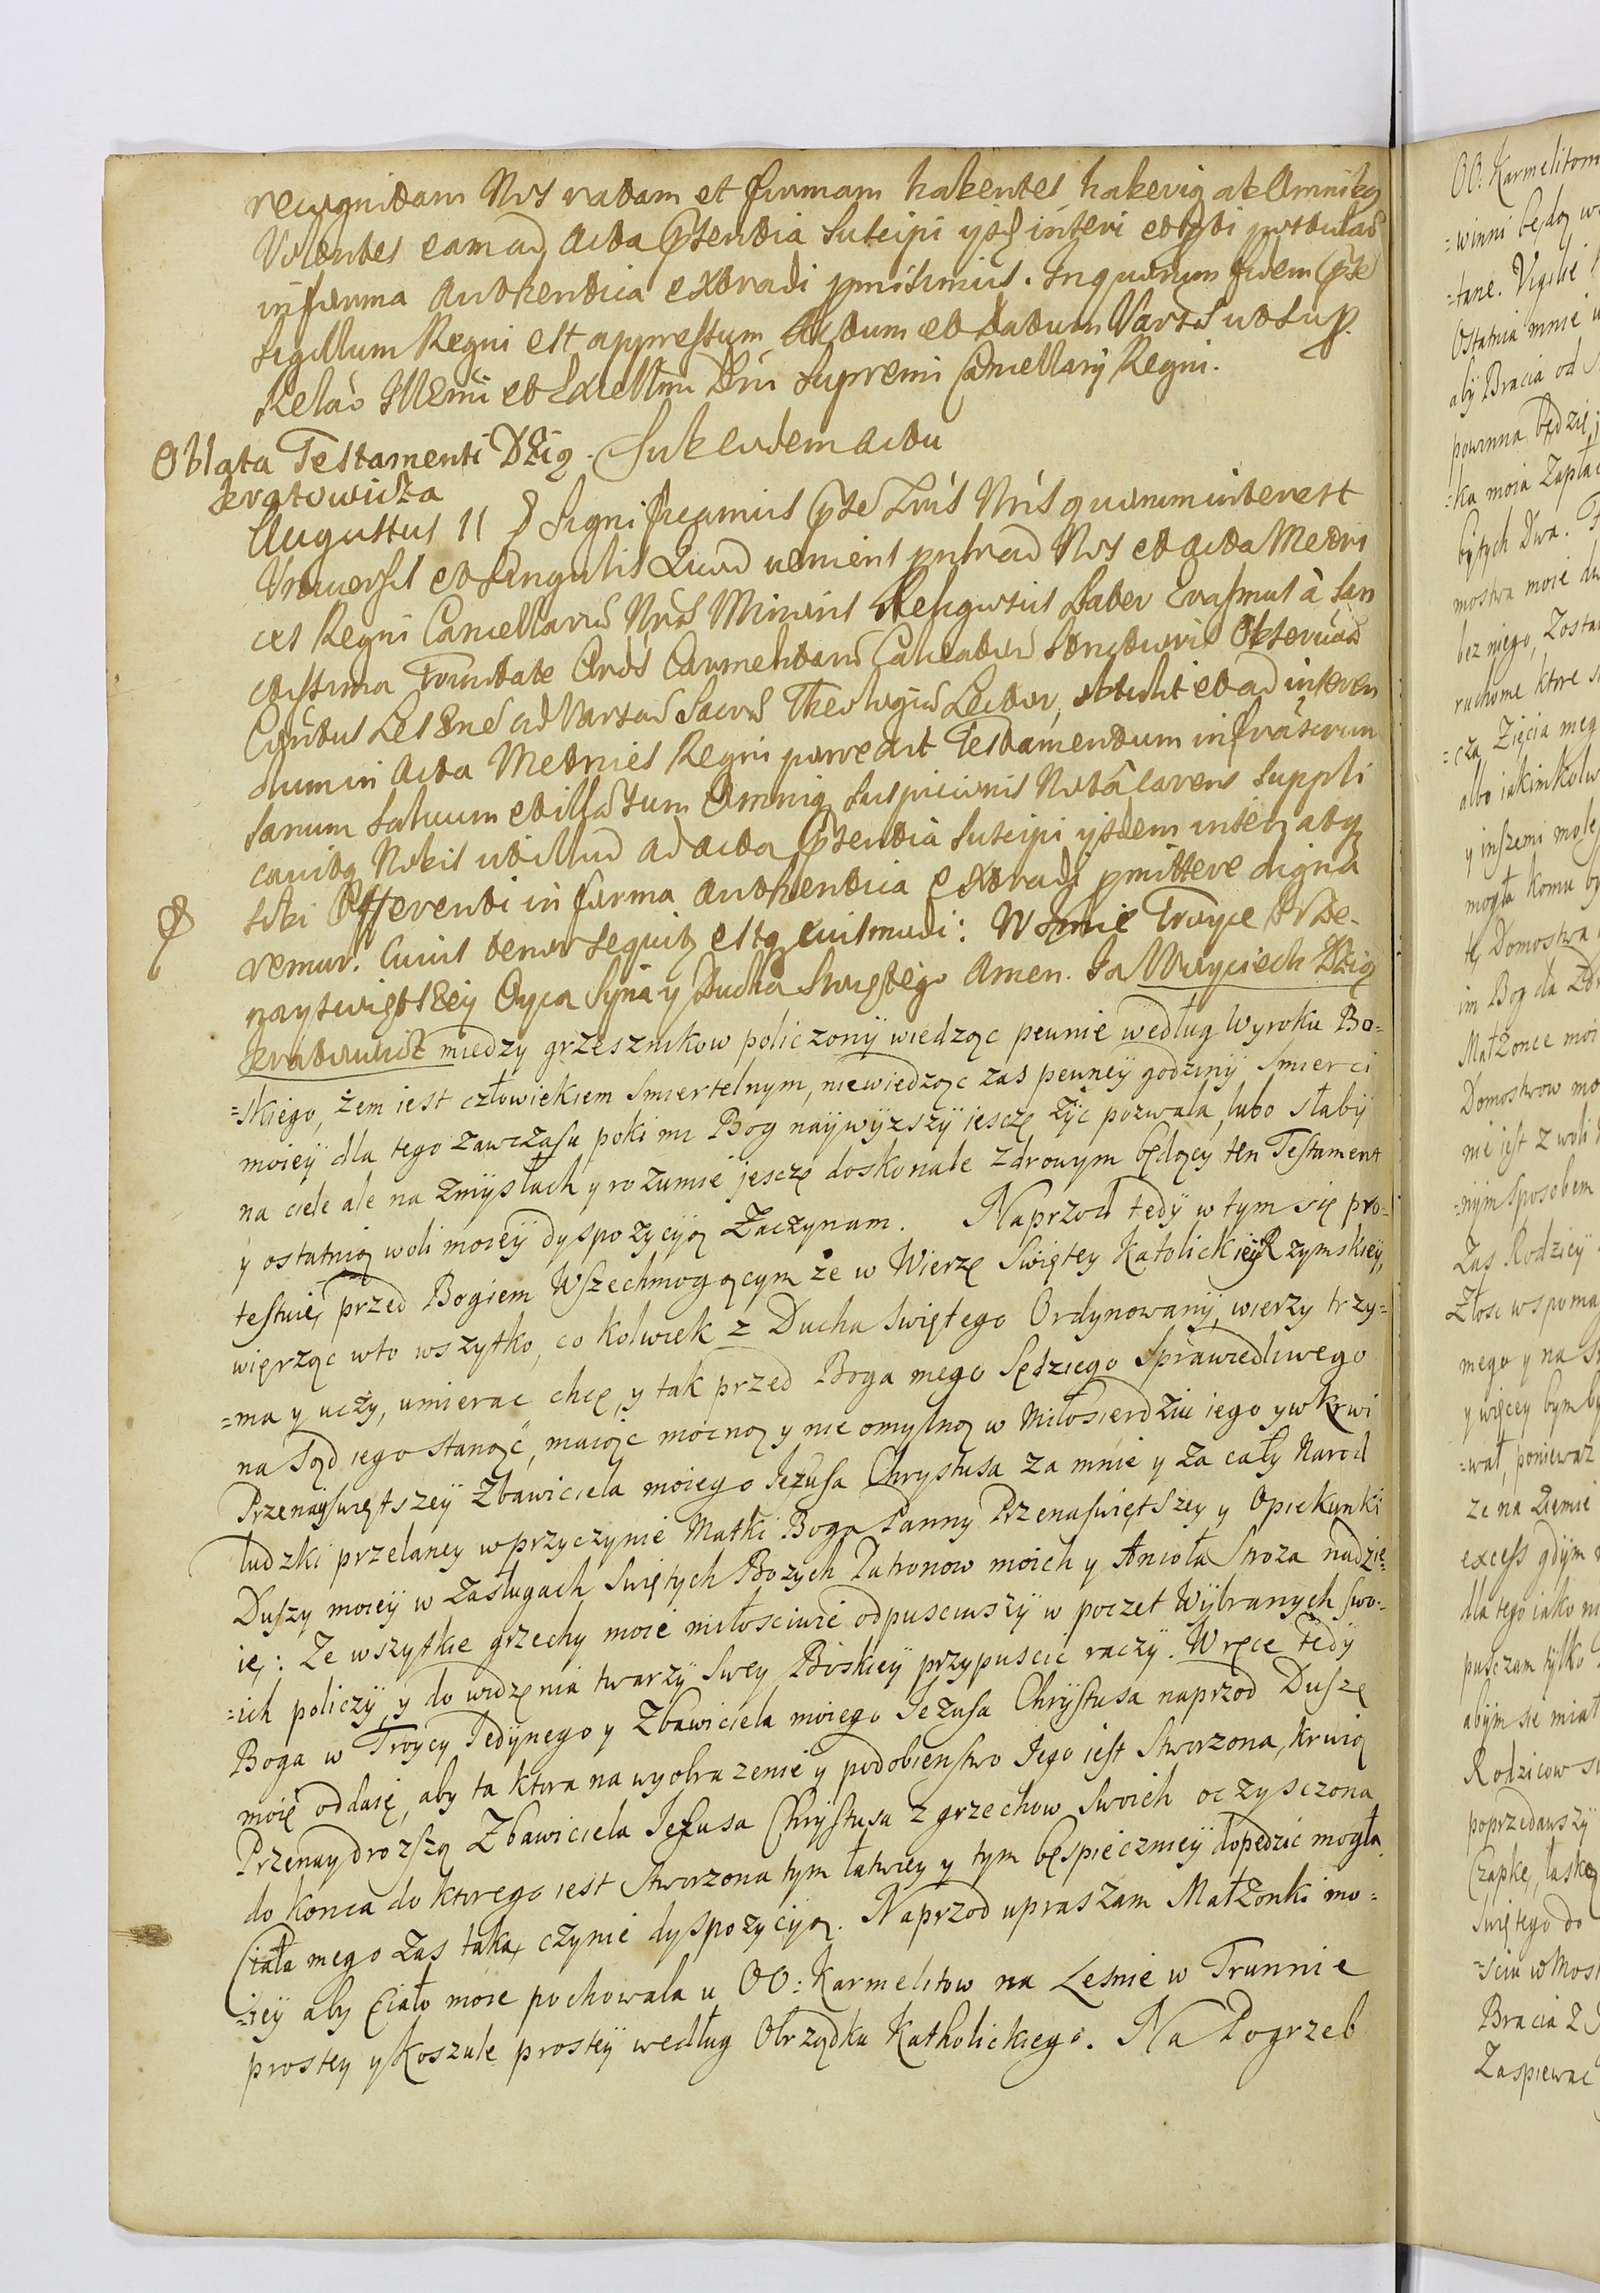 recognitam Nos ratam et firmam habentes, haberiq ab omnibq
Volentes eam ad Acta Pstentia suscipi ijsd inseri et Pti postulad
in forma Authentica extradi pmisimus. In quorum fidem Pste
Sigillum Regni est appressum Actum et datum Vars ut sup.
Relao Illmi et Excellmi Dni Supremi Cancellarij Regni.
Oblata Testamenti Dzig Sub eodem actu
keratowicza
Augustus II § Significamus Pste Lris Nris quorum interest
Universis et Singulis Quod veniens pnlr ad Nos et acta Metri
ces Regni Cancellaria Nra Minoris Religiosus Pater Erasmus à San
ctissima Trinitate Ords Carmelitaru Calceatoru Strictioris Observa
Contus Lesne ad Varsa Sacra Theologia Lector, obtulit et ad inseren
dum in Acta Metrices Regni porrexit Testamentum infrascrum
Sanum Salvum et illasum Omniq Suspicionis Nota carens Suppli
cavitq Nobis ut illud ad acta Pstentia suscipi ijsdem inseri atq
sibi Offerenti in forma Authentica Extradi pmittere digna
remur. Cuius tenor sequitq estq eiusmodi: W Jmie Troyce Prze-
nayswiętszey Oyca Syna y Ducha Swiętego Amen. Ja Woyciech Dzig
keratowicz miedzy grzesznikow policzony wiedząc pewnie według Wyroku Bo=
=skiego, żem iest człowiekiem smiertelnym, niewiedząc zas pewneÿ godziny Smierci
moieÿ dla tego zawczasu poki mi Bog naywyższy iescze żyć pozwala, lubo słaby
na ciele ale na zmysłach y rozumie jeszcze doskonale zdrowym będący ten Testament
y ostatnią woli moieÿ dyspozycyą Zaczynam. Naprzod tedÿ w tym się pro=
testuię przed Bogiem Wszechmogącym że w Wierze Swiętey Katolickiey Rzymskiey,
wierząc wto wszytko, co kolwiek z Ducha Swiętego Ordynowany, wierzy trzy=
=ma y uczy, umierac chcę, y tak przed Boga mego Sędziego Sprawiedliwego
na sąd iego stanąć, maiąc mocną y nie omylną w Miłosierdziu iego y w krwi
Przenayswiętszeÿ Zbawiciela moiego Jezusa Chrystusa za mnie y za cały Narod
ludzki przelaney w przyczynie Matki Boga Panny Przenaswiętszey y Opiekunki
Duszy moieÿ w zasługach Swiętych Bozych Patronow moich y Anioła Stroza nadzie=
ię: Ze wszytkie grzechy moie miłosciwie odpusciwszÿ w poczet Wÿbranych swo=
=ich policzÿ, y do widzenia twarzÿ swey Boskieÿ przypuscic raczÿ. W ręce tedÿ
Boga w Troycy Jedÿnego y Zbawiciela moiego Jezusa Chrÿstusa naprzod Duszę
moię oddaię, aby ta ktora na wyobrazenie y podobienstwo Jego iest stworzona, krwią
Przenaydrozszą Zbawiciela Jezusa Chrÿstusa z grzechow Swoich oczysczona
do konca do ktorego iest stworzona tym łatwiey y tym bespiecznieÿ dopędzic mogła.
Ciała mego zas taką czynie dyspozycyą. Naprzod upraszam Małżonki mo=
=ieÿ aby Ciało moie pochowała u OO: Karmelitow na Lesnie w Trunnie
prostey y koszule prosteÿ według Obrządku Katholickiego. Na Pogrzeb
OO. Karmelitom
=winni będą
=tane. Vigilie
Ostatnia mnie
abÿ Bracia od
powinna będzie
=ka moia Zapłac
bÿtych Dwa.
mostwa moie
bez niego, Zosta
ruchome ktore
=cza Zięcia meg
albo iakimkolw
y inszemi
mogła komu by
tÿ Domostwa
im Bog da
Małzonce moi
Domostwow mo
nie iest z woli
=nÿm sposobem
Zas Rodzicÿ
Złosc wspoma
mego y na
y więcey bym by
=wał, poniewaz
ze na Ziemie
excess gdÿm
dla tego iako
pusczam tÿlko
abÿm sie miał
Rodzicow
poprzedawszÿ
Czapkę, laskę
Swiętego do
=sciu w Most
Bracia z
Zaspiewac